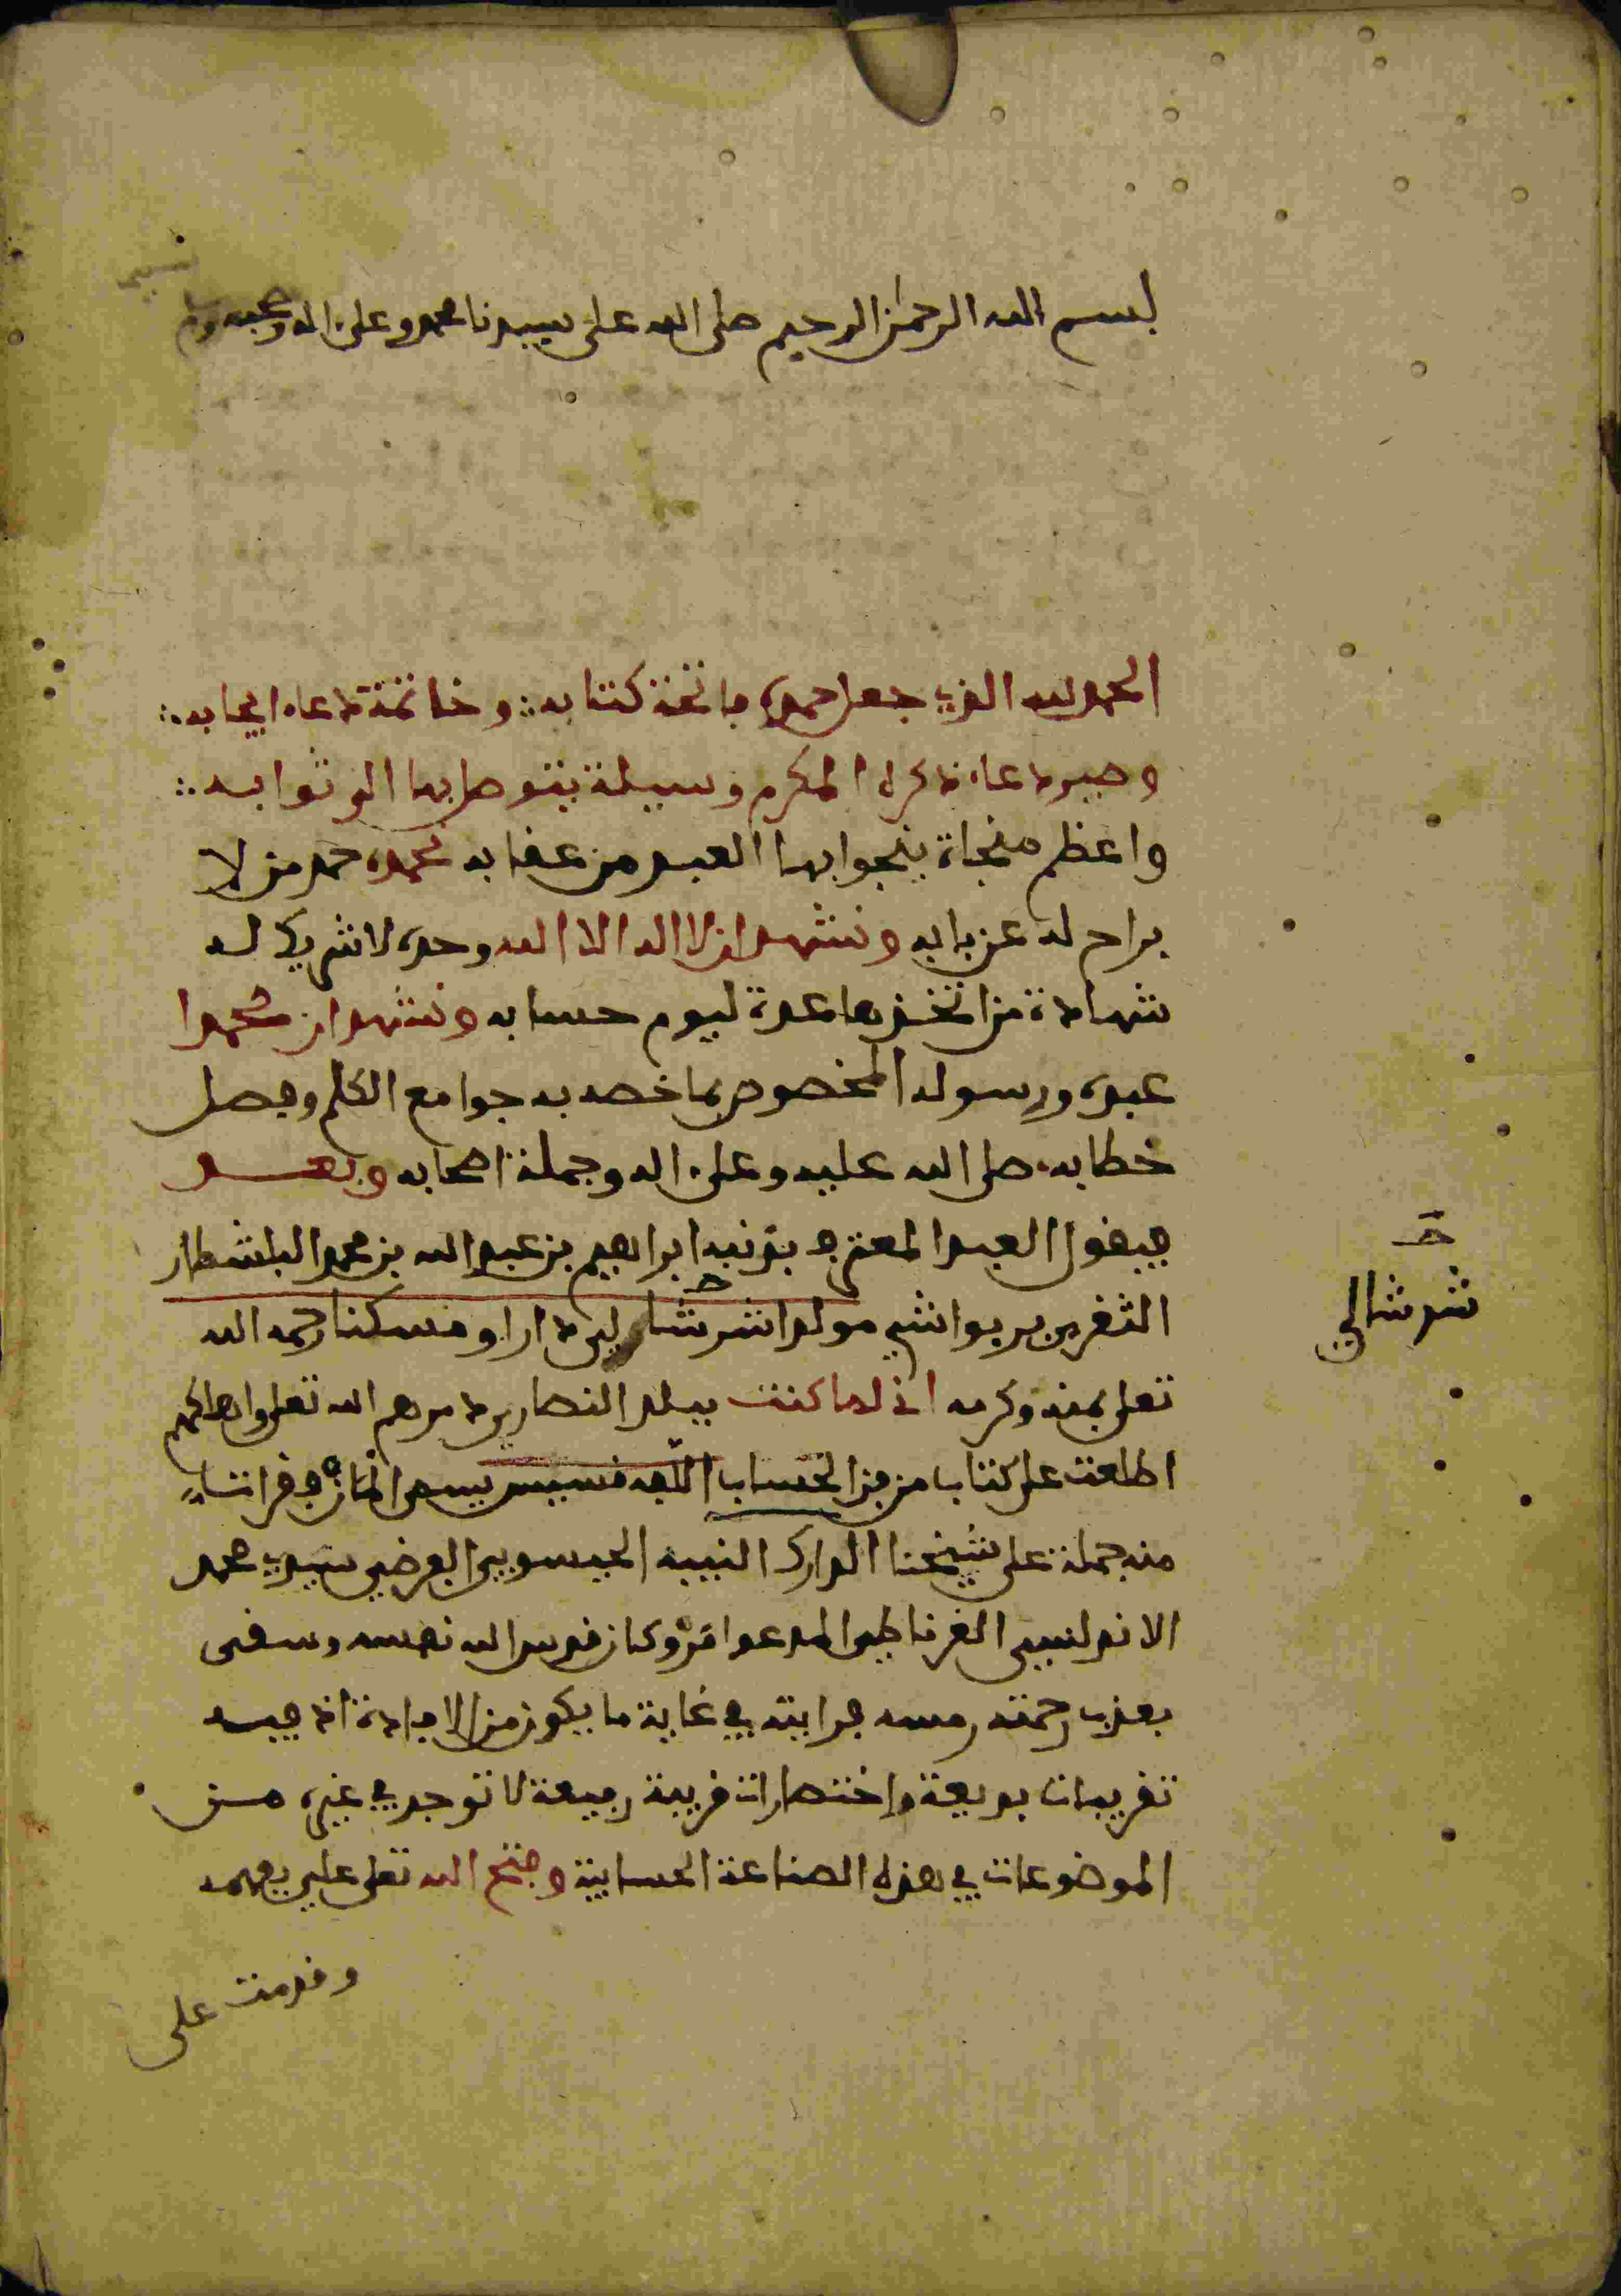 بسم الله الرحمن الرحيم صلى الله على سيدنا محمد وعلى اله وصحبه وسلم
الحمد لله الذي جعل حمده فاتحة كتابه ∴ وخاتمة دعاء احبابه ∴
وصير دعاء ذكره المكرم وسيلة يتوصل بها الى ثوابه ∴
واعظم منجاة ينجوا بها العبد من عقابه نحمده حمد من لا
براح له عن بابه ونشهد ان لا اله الا الله وحده لا شريك له
شهادة من اتخذها عدة ليوم حسابه ونشهد ان محمدا
عبده ورسوله المخصوص بما خصه به جوامع الكلم وفصل
خطابه صلى الله عليه وعلى اله وجملة اصحابه وبعد
فيقول العبد المعترف بذنبه ابراهيم بن عبد الله بن محمد البلشطار
الثغري بربواشي مولدا شرشالي دارا ومسكنا رحمه الله
شرشالي
تعلى بمنه وكرمه اني لما كنت ببلد النصارى دمرهم الله تعلى واهلكهم
اطلعت على كتاب من فن الحساب الفه قسيس يسمى المانزف قرات
منه جملة على شيخنا الدارك النبيه الحيسوبي الفرضي سيدي محمد
الاندلسي الغرناطي المدعوا قزوكان قدس الله نفسه وسقى
بعذب رحمته رمسه فرايته في غاية ما يكون من الافادة اذ فيه
تقريبات بديعة واختصارات قريبة رفيعة لا توجد في غيره من
الموضوعات في هذه الصناعة الحسابية وفتح الله تعلى علي بفهمه
وقدمت على